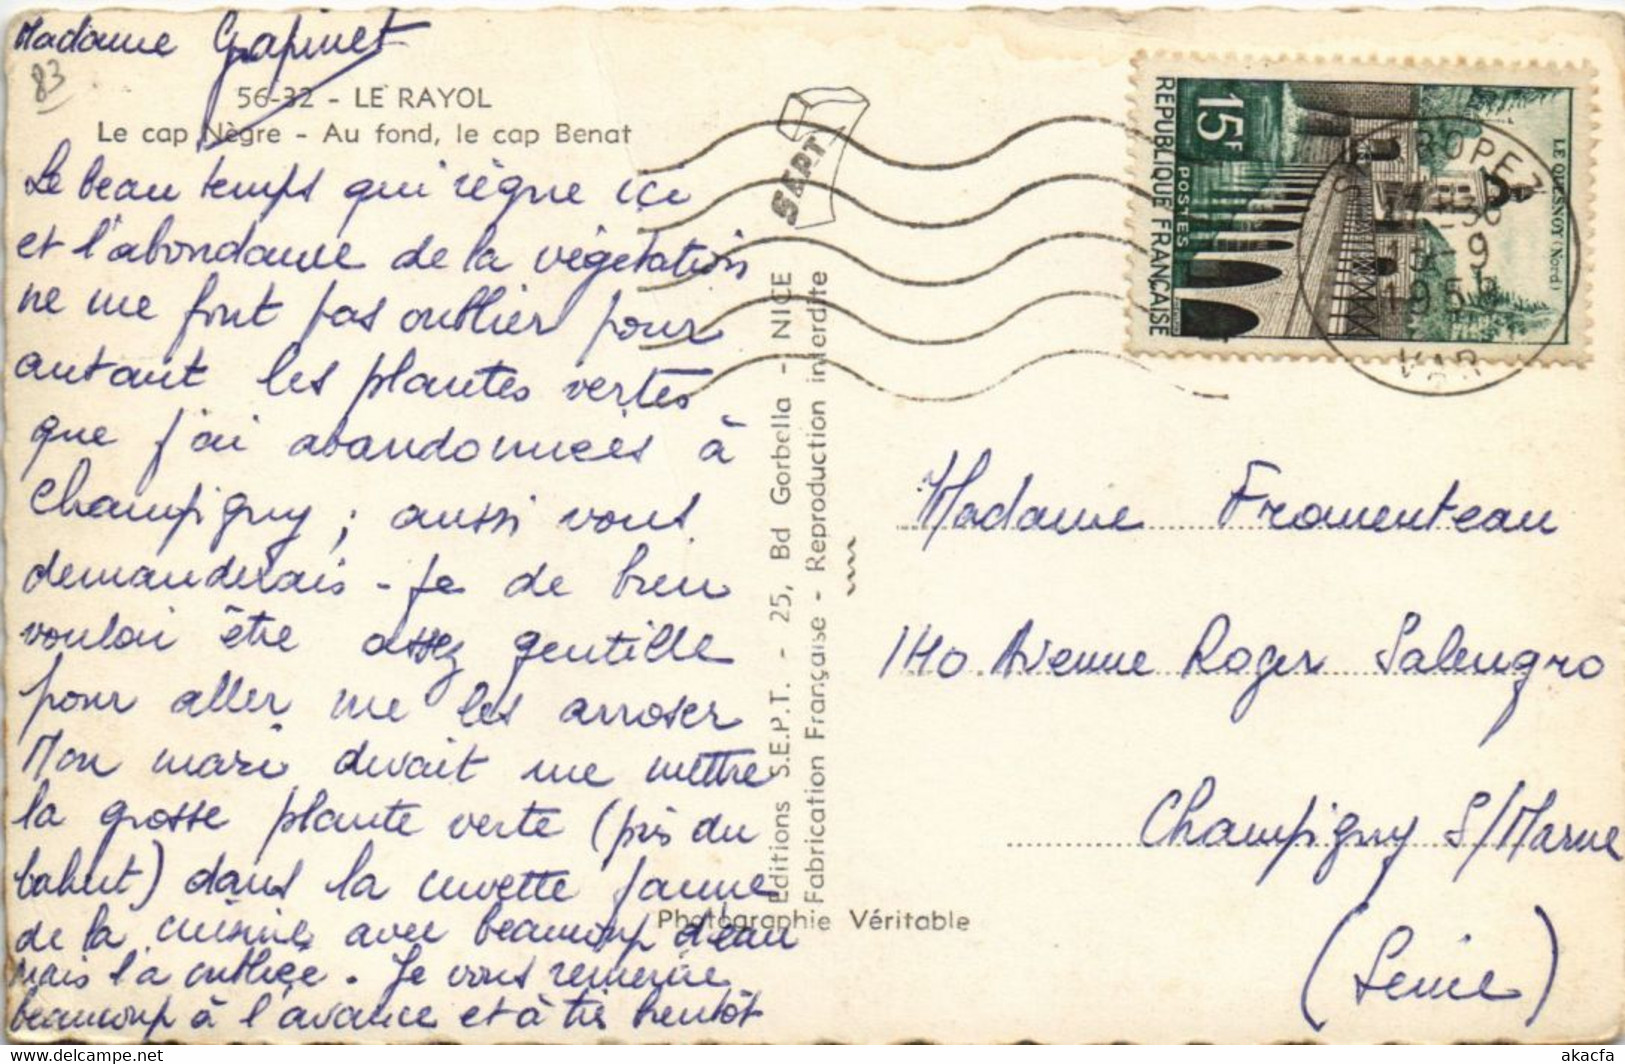 Madame Grapinet
83
56-32 - LE RAYOL
Le cap Nègre - Au fond, le cap Benat
Le beau temps qui règne ici
et l'abondance de la végétation
ne me font pas oublier pour
autant les plantes vertes
que j'ai abandonnées à
Champigny ; aussi vous
demanderais-je de bien
vouloir être assez gentille
pour aller me les arroser
Mon mari devait me mettre
la grosse plante verte (près du
bahut) dans la cuvette jaune
de la cuisine avec beaucoup d'eau
mais l'a oubliée. Je vous remercie
beaucoup à l'avance et à très bientôt
SEPT
Editions S.E.P.T. - 25, Bd Gorbella - NICE
Fabrication Française - Reproduction interdite
Photographie Véritable
15F
REPUBLIQUE FRANÇAISE
POSTES
LE QUESNOY (Nord)
ROPEZ
15-9
195
VAR
Madame Fromenteau
140 Avenue Roger Salengro
Champigny S/Marne
(Seine)
akacfa